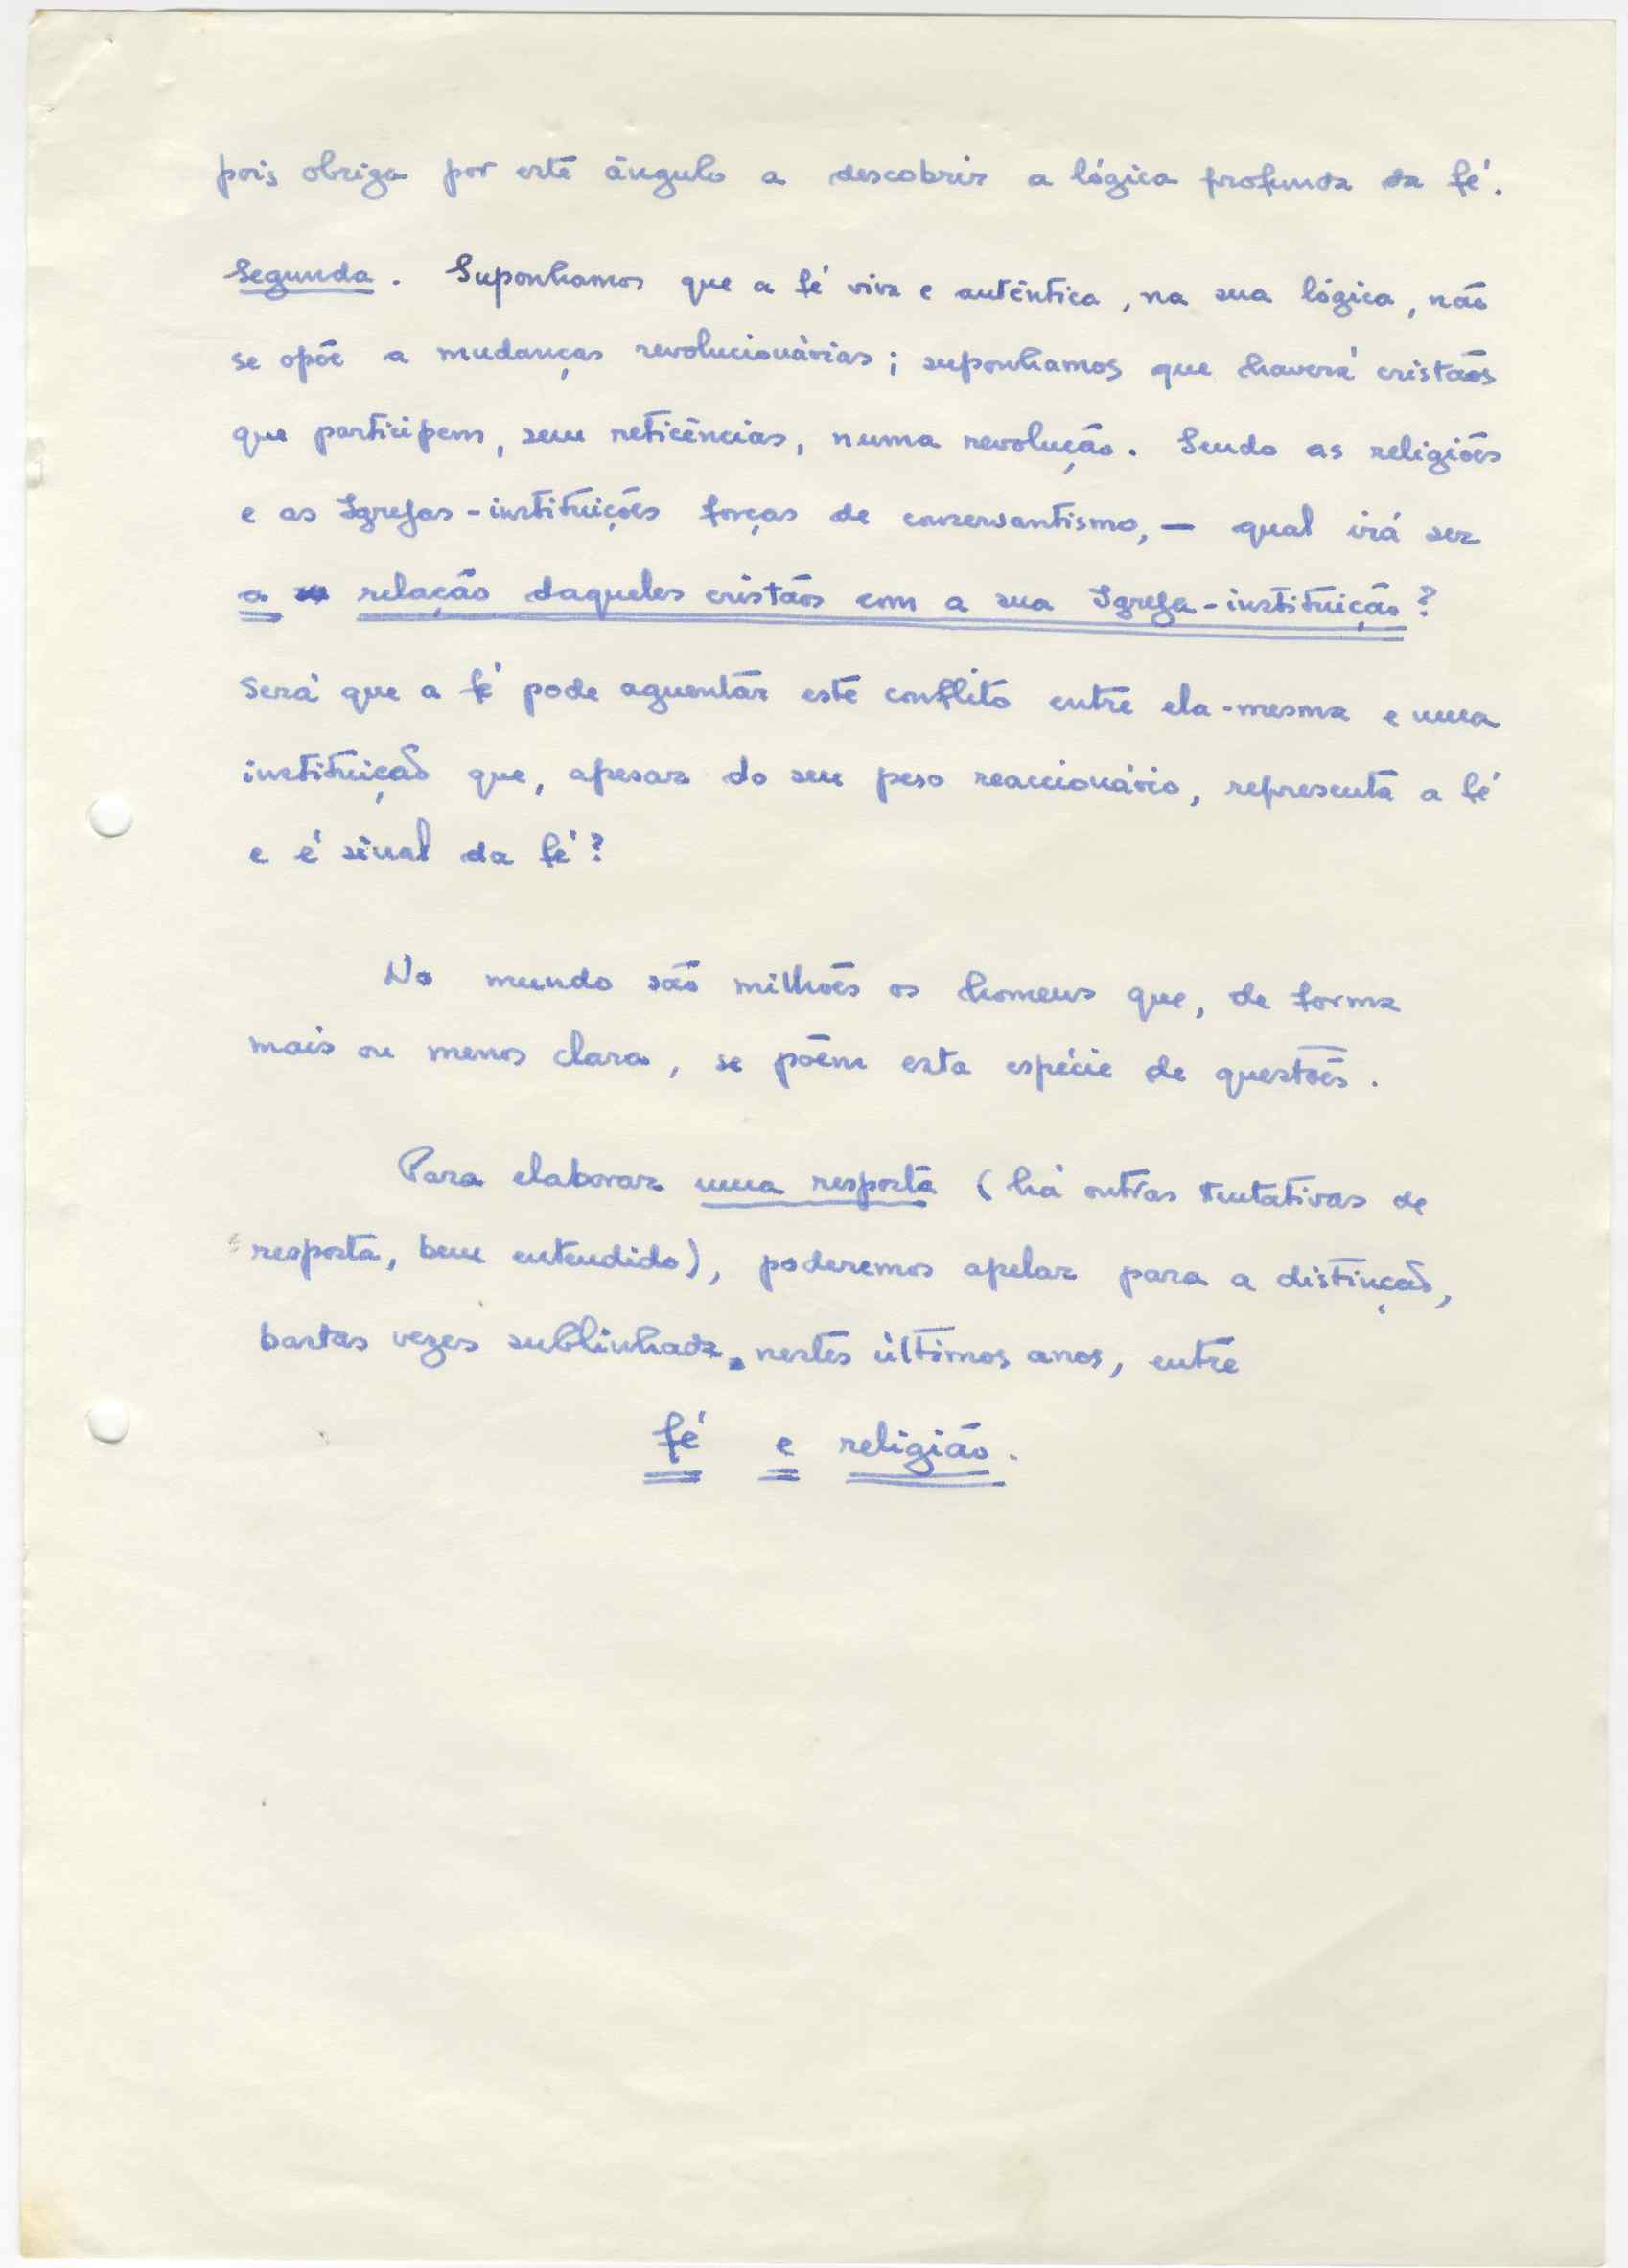 pois obriga por este ângulo a descobrir a lógica profunda da fé.
Segunda. Suponhamos que a fé viva e autêntica, na sua lógica, não
se opõe a mudanças revolucionárias; suponhamos que haverá cristãos
que participem, sem reticências, numa revolução. Sendo as religiões
e as Igrejas-instituições forças de conservantismo, — qual irá ser
a relação daqueles cristãos com a sua Igreja-instituição?
Será que a fé pode aguentar este conflito entre ela-mesma e uma
instituição que, apesar do seu peso reaccionário, representa a fé
e é sinal da fé?
No mundo são milhões os homens que, de forma
mais ou menos clara, se põem esta espécie de questões.
Para elaborar uma resposta (há outras tentativas de
resposta, bem entendido), poderemos apelar para a distinção,
bastas vezes sublinhada nestes últimos anos, entre
fé e religião.